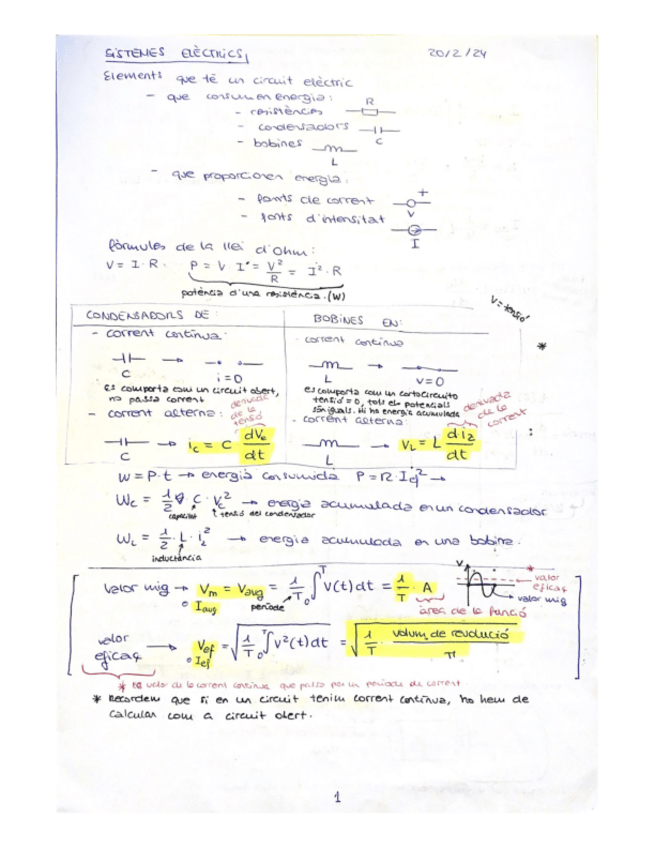 SISTEMES ELÈCTRICS,
20/2/24
Elements que té un circuit elèctric
- que consumen energia:
- resistències R
- condensadors C
- bobines L
- que proporcionen energia:
- fonts de corrent + V
- fonts d'intensitat I
fórmules de la llei d'Ohm:
V = I · R · P = V · I = V²/R = I² · R
potència d'una resistència. (W)
V = tensió
CONDENSADORS DE :
- corrent contínua ·
C i = 0
es comporta com un circuit obert,
no passa corrent
- corrent alterna:
derivada de la tensió
C → ic = C dVc/dt
BOBINES EN:
- corrent contínua
*
L V = 0
es comporta com un cortocircuito
tensió = 0, tots els potencials
són iguals. Hi ha energia acumulada
- corrent alterna:
derivada de la corrent
L → VL = L diL/dt
:
W = P · t → energia consumida P = R · Ief² →
Wc = 1/2 · C · Vc² → energia acumulada en un condensador
capacitat tensió del condensador
WL = 1/2 · L · iL² → energia acumulada en una bobina.
inductància
valor mig → Vm = Vavg = 1/T ∫₀ᵀ v(t) dt = 1/T · A
o Iavg període àrea de la funció
V * valor eficaç
valor mig
valor eficaç → Vef = √(1/T ∫₀ᵀ v²(t) dt) = √(1/T · volum de revolució/π)
o Ief
* Recordem que si en un circuit tenim corrent contínua, ho hem de
calcular com a circuit obert.
1